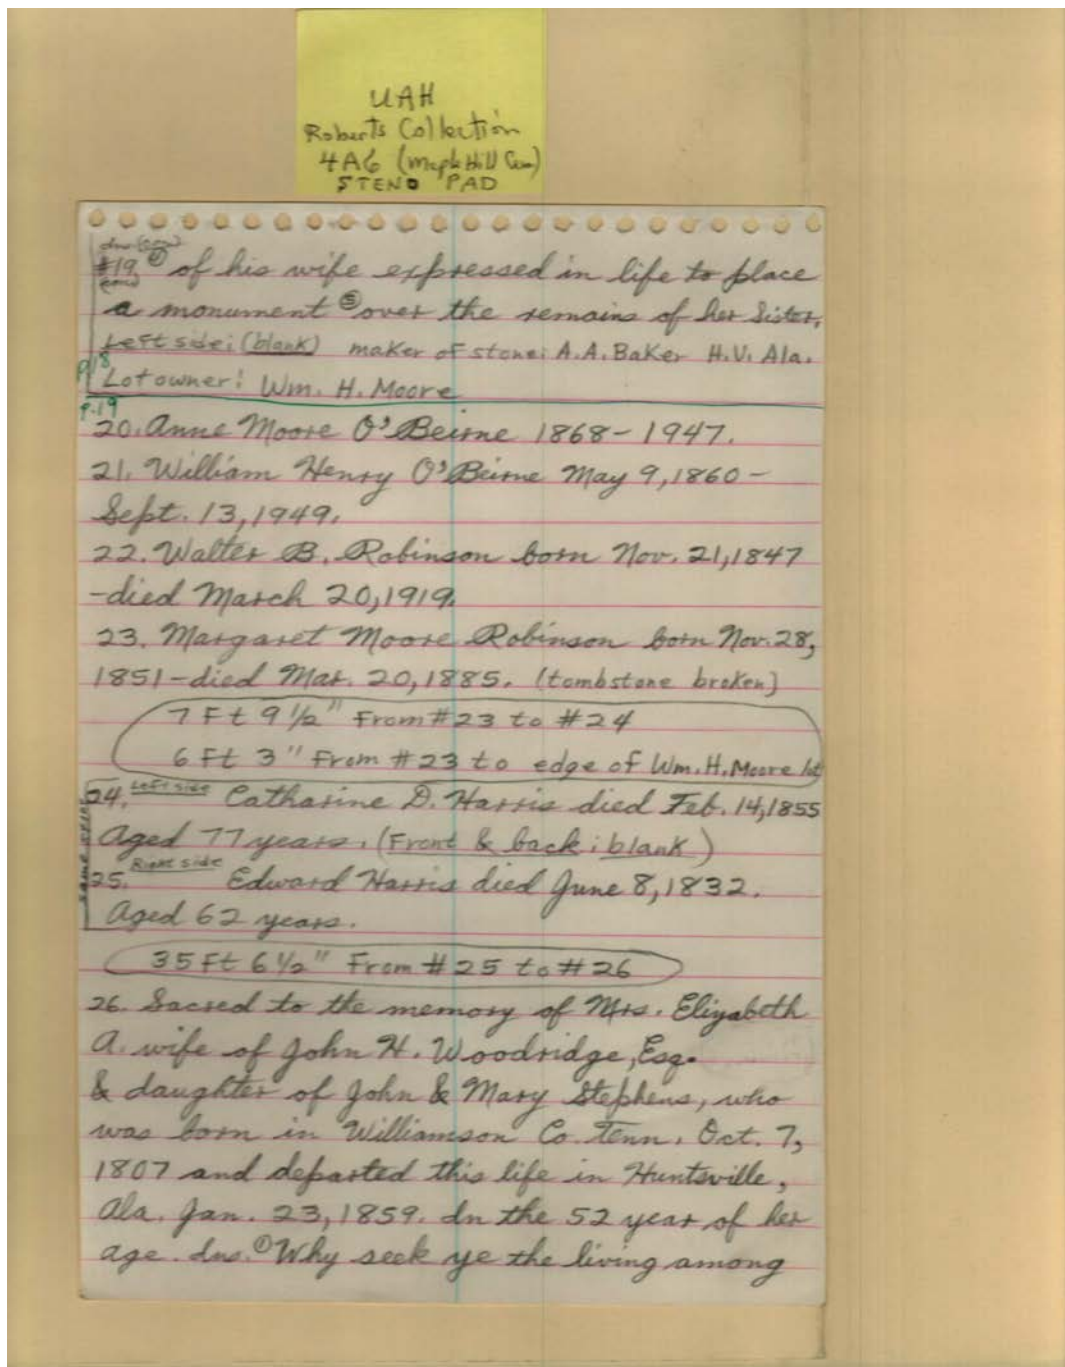 UAH
Roberts Collection
4A6 (Maple Hill Cem)
STENO PAD
ins. (con)
#19. ④ of his wife expressed in life to place
cont
a monument ⑤ over the remains of her Sister.
Left side: (blank) maker of stone: A.A. Baker H.V. Ala.
p.18
Lot owner: Wm. H. Moore
p.19
20. Anne Moore O'Beirne 1868-1947.
21. William Henry O'Beirne May 9, 1860-
Sept. 13, 1949.
22. Walter B. Robinson born Nov. 21, 1847
-died March 20, 1919.
23. Margaret Moore Robinson born Nov. 28,
1851-died Mar. 20, 1885. (tombstone broken)
7 Ft 9 1/2" From #23 to #24
6 Ft 3" From #23 to edge of Wm. H. Moore lot
24. Left side Catharine D. Harris died Feb. 14, 1855
Aged 77 years. (Front & back: blank)
25. Right side Edward Harris died June 8, 1832.
Aged 62 years.
35 Ft 6 1/2" From #25 to #26
26. Sacred to the memory of Mrs. Elizabeth
A. wife of John H. Woodridge, Esq.
& daughter of John & Mary Stephens, who
was born in Williamson Co. Tenn. Oct. 7,
1807 and departed this life in Huntsville,
Ala. Jan. 23, 1859. In the 52 year of her
age. Ins. ① Why seek ye the living among